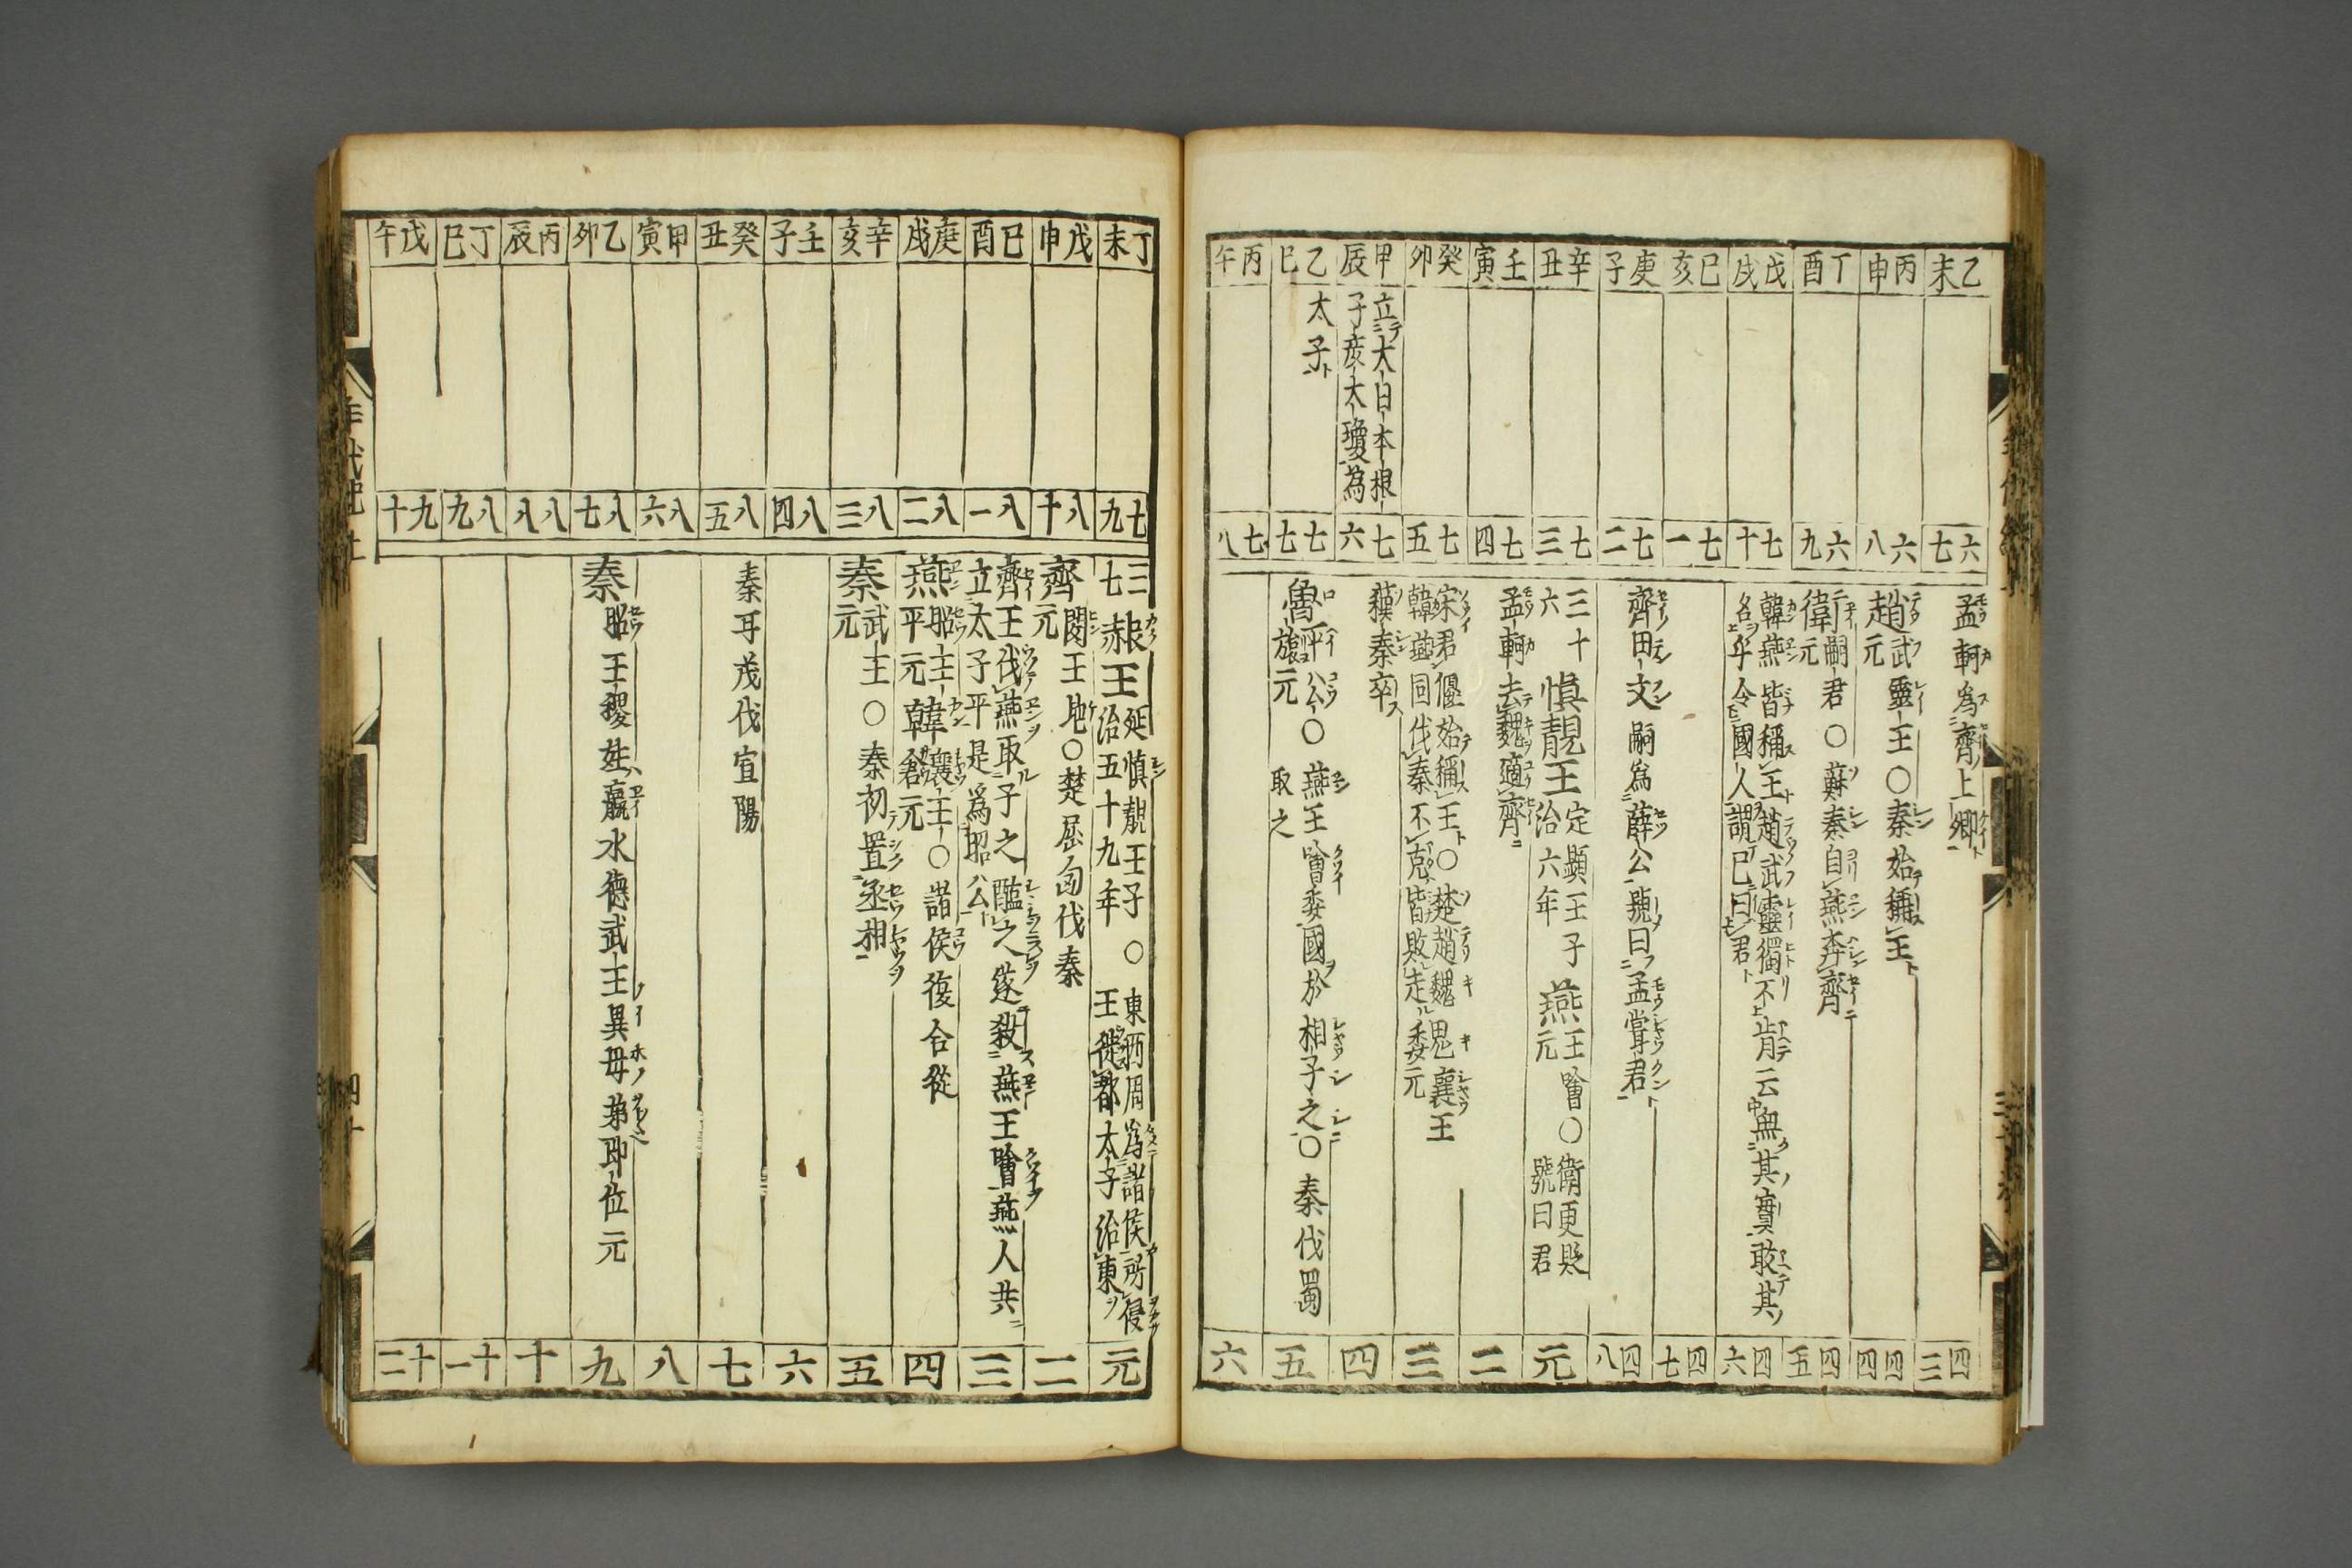 乙未
六七
孟軻為齊上卿
四三
丙申
六八
趙武靈王元〇秦始稱王
四四
丁酉
六九
衛嗣君元〇蘇秦自燕奔齊
四五
戊戌
七十
韓燕皆稱王趙武靈獨不肯云無其實敢其
名乎令國人謂已曰君
四六
己亥
七一
四七
庚子
七二
齊田文嗣為薛公號曰孟嘗君
四八
辛丑
七三
三十六 慎靚王 定顯王子治六年 燕王噲元〇衛更貶號曰君
元
壬寅
七四
孟軻去魏適齊
二
癸卯
七五
宋君偃始稱王〇楚趙魏魏襄王
韓燕同伐秦不克皆敗走委元
三
甲辰
立大日本根
子彥太瓊為
七六
蘇秦卒
四
乙巳
太子
七七
魯平公旅元〇燕王噲委國於相子之〇秦伐蜀取之
五
丙午
七八
六
丁未
七九
三七 赧王 延慎靚王子治五十九年〇東西周為諸侯所侵
王徙都太子治東
元
戊申
八十
齊閔王地元〇楚屈匄伐秦
二
己酉
八一
齊王伐燕取子之醢之遂殺燕王噲燕人共
立太子平是為昭公
三
庚戌
八二
燕昭王平元 韓襄王倉元〇諸侯復合從
四
辛亥
八三
秦武王元〇秦初置丞相
五
壬子
八四
六
癸丑
八五
秦耳茂伐宜陽
七
甲寅
八六
八
乙卯
八七
秦昭王稷姓嬴水德武王異母弟即位元
九
丙辰
八八
十
丁巳
八九
十一
戊午
九十
十二
年代記上
四十